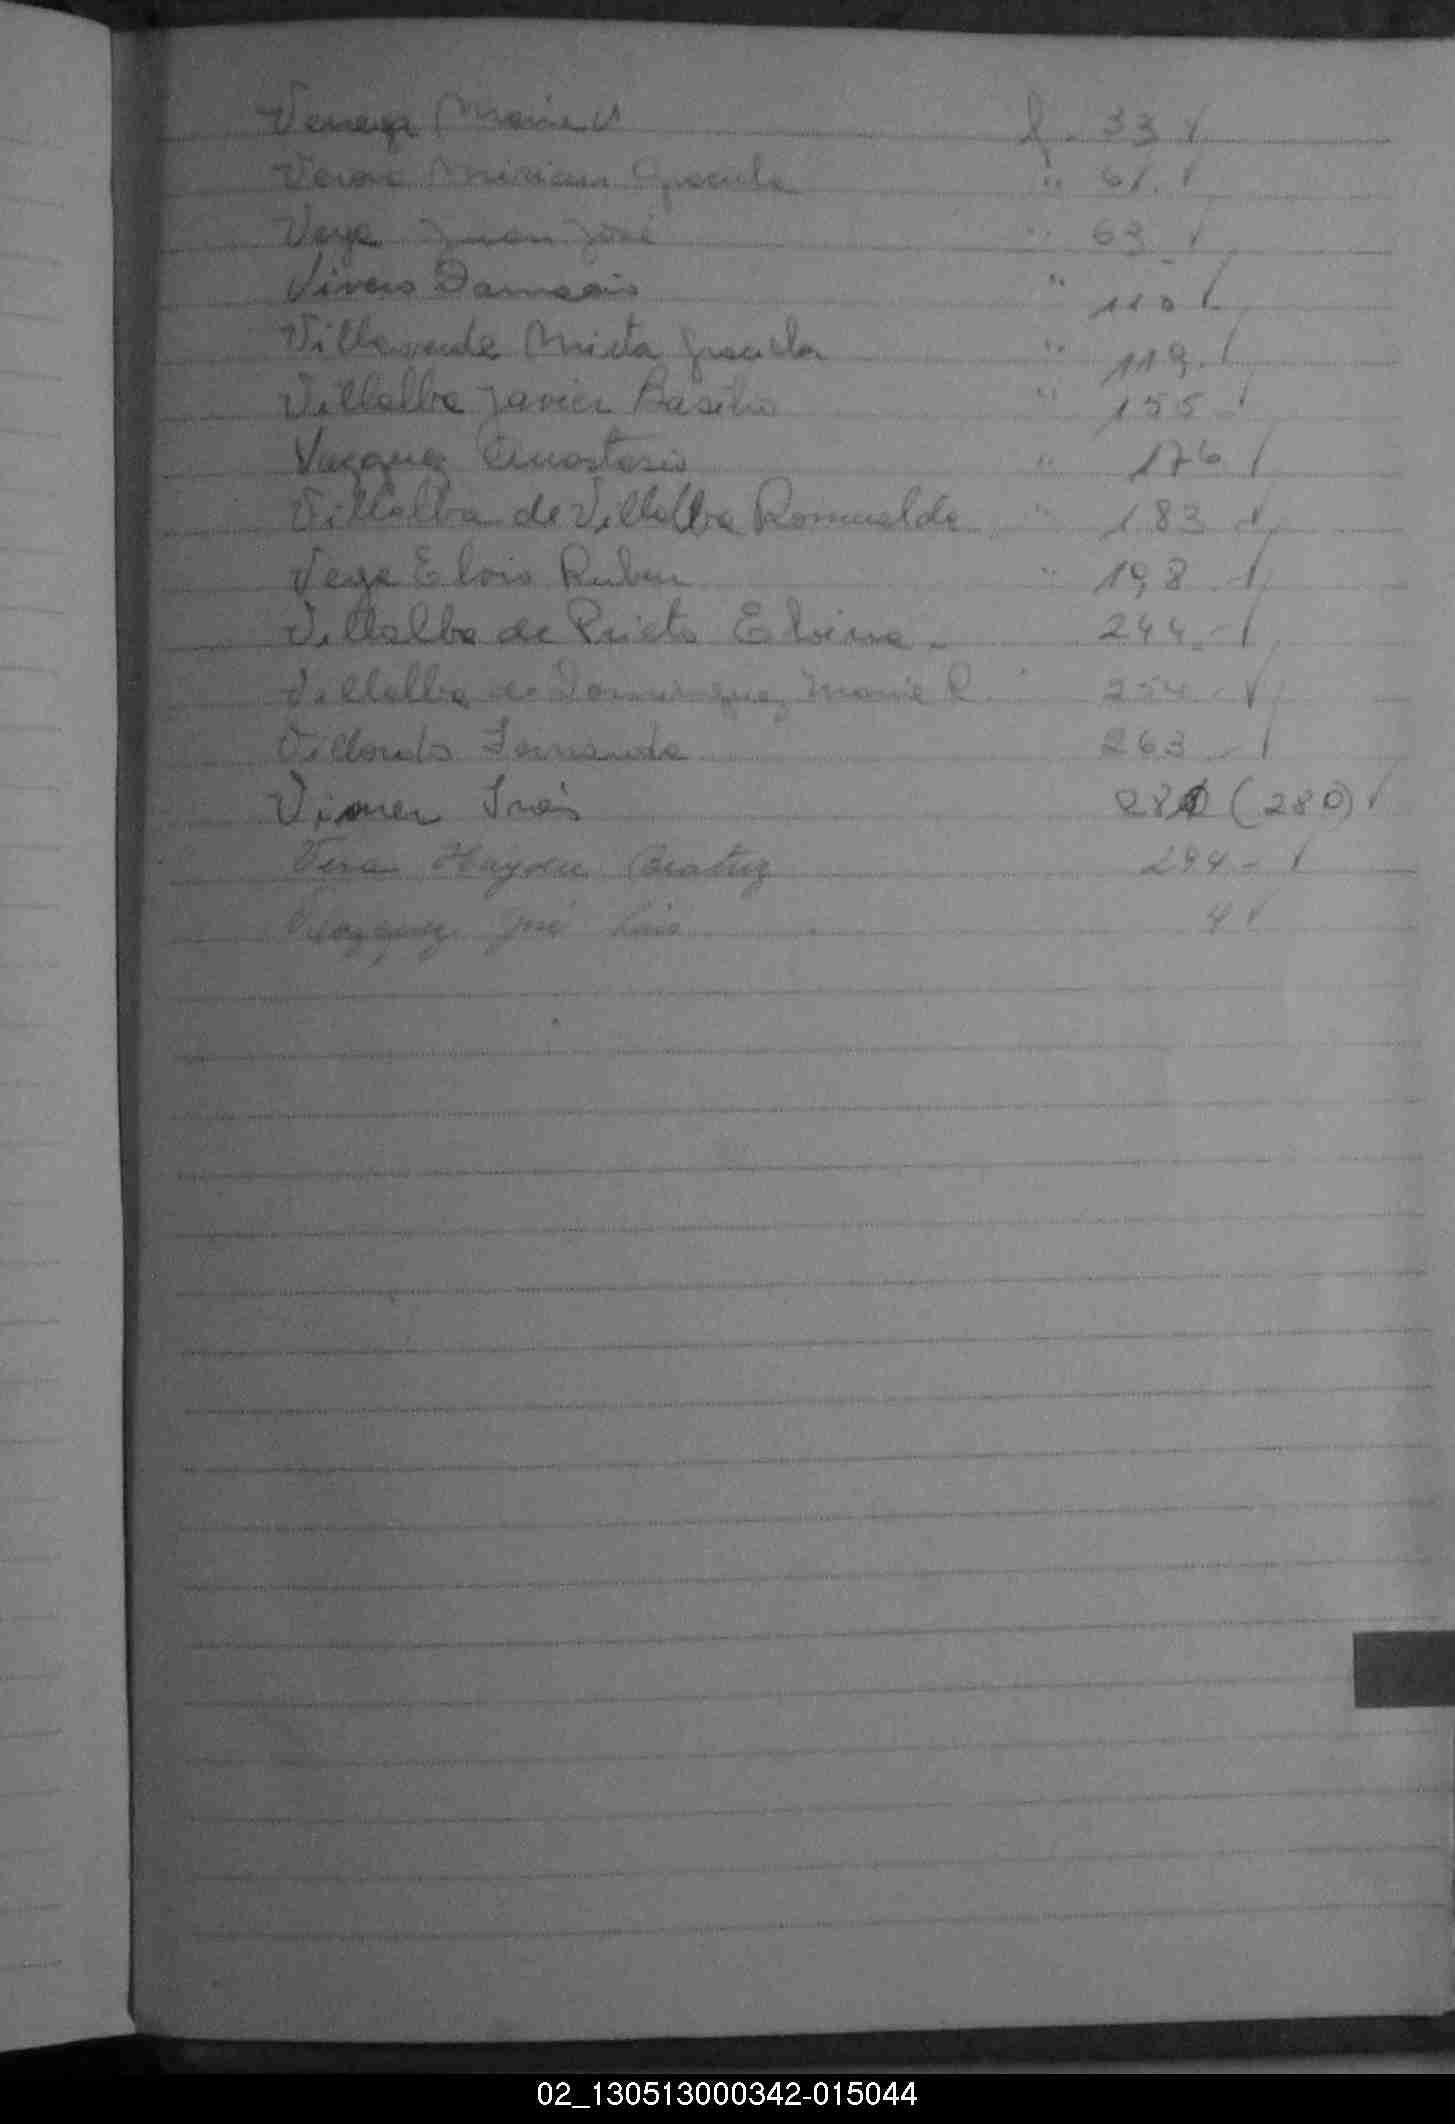 Venega Maria V f. 33 ✓
Miriam Graciela " 61. ✓
Vega Juan José " 63 ✓
Vivero Damasio " 110 ✓
Villaverde Mirta Graciela " 119 ✓
Villalba Javier Basilio " 155 ✓
Vazquez Anastasio " 176 ✓
Villalba de Villalba Romualda " 183 ✓
Vega Eloio Ruben " 198 ✓
Villalba de Prieto Eloisa 244 - ✓
Villalba de Dominguez Maria R. 254 - ✓
Fernanda 263 - ✓
Inés 280 (280) ✓
Vera Haydee Beatriz 294 - ✓
Velazquez José Luis 4 ✓
02_130513000342-015044